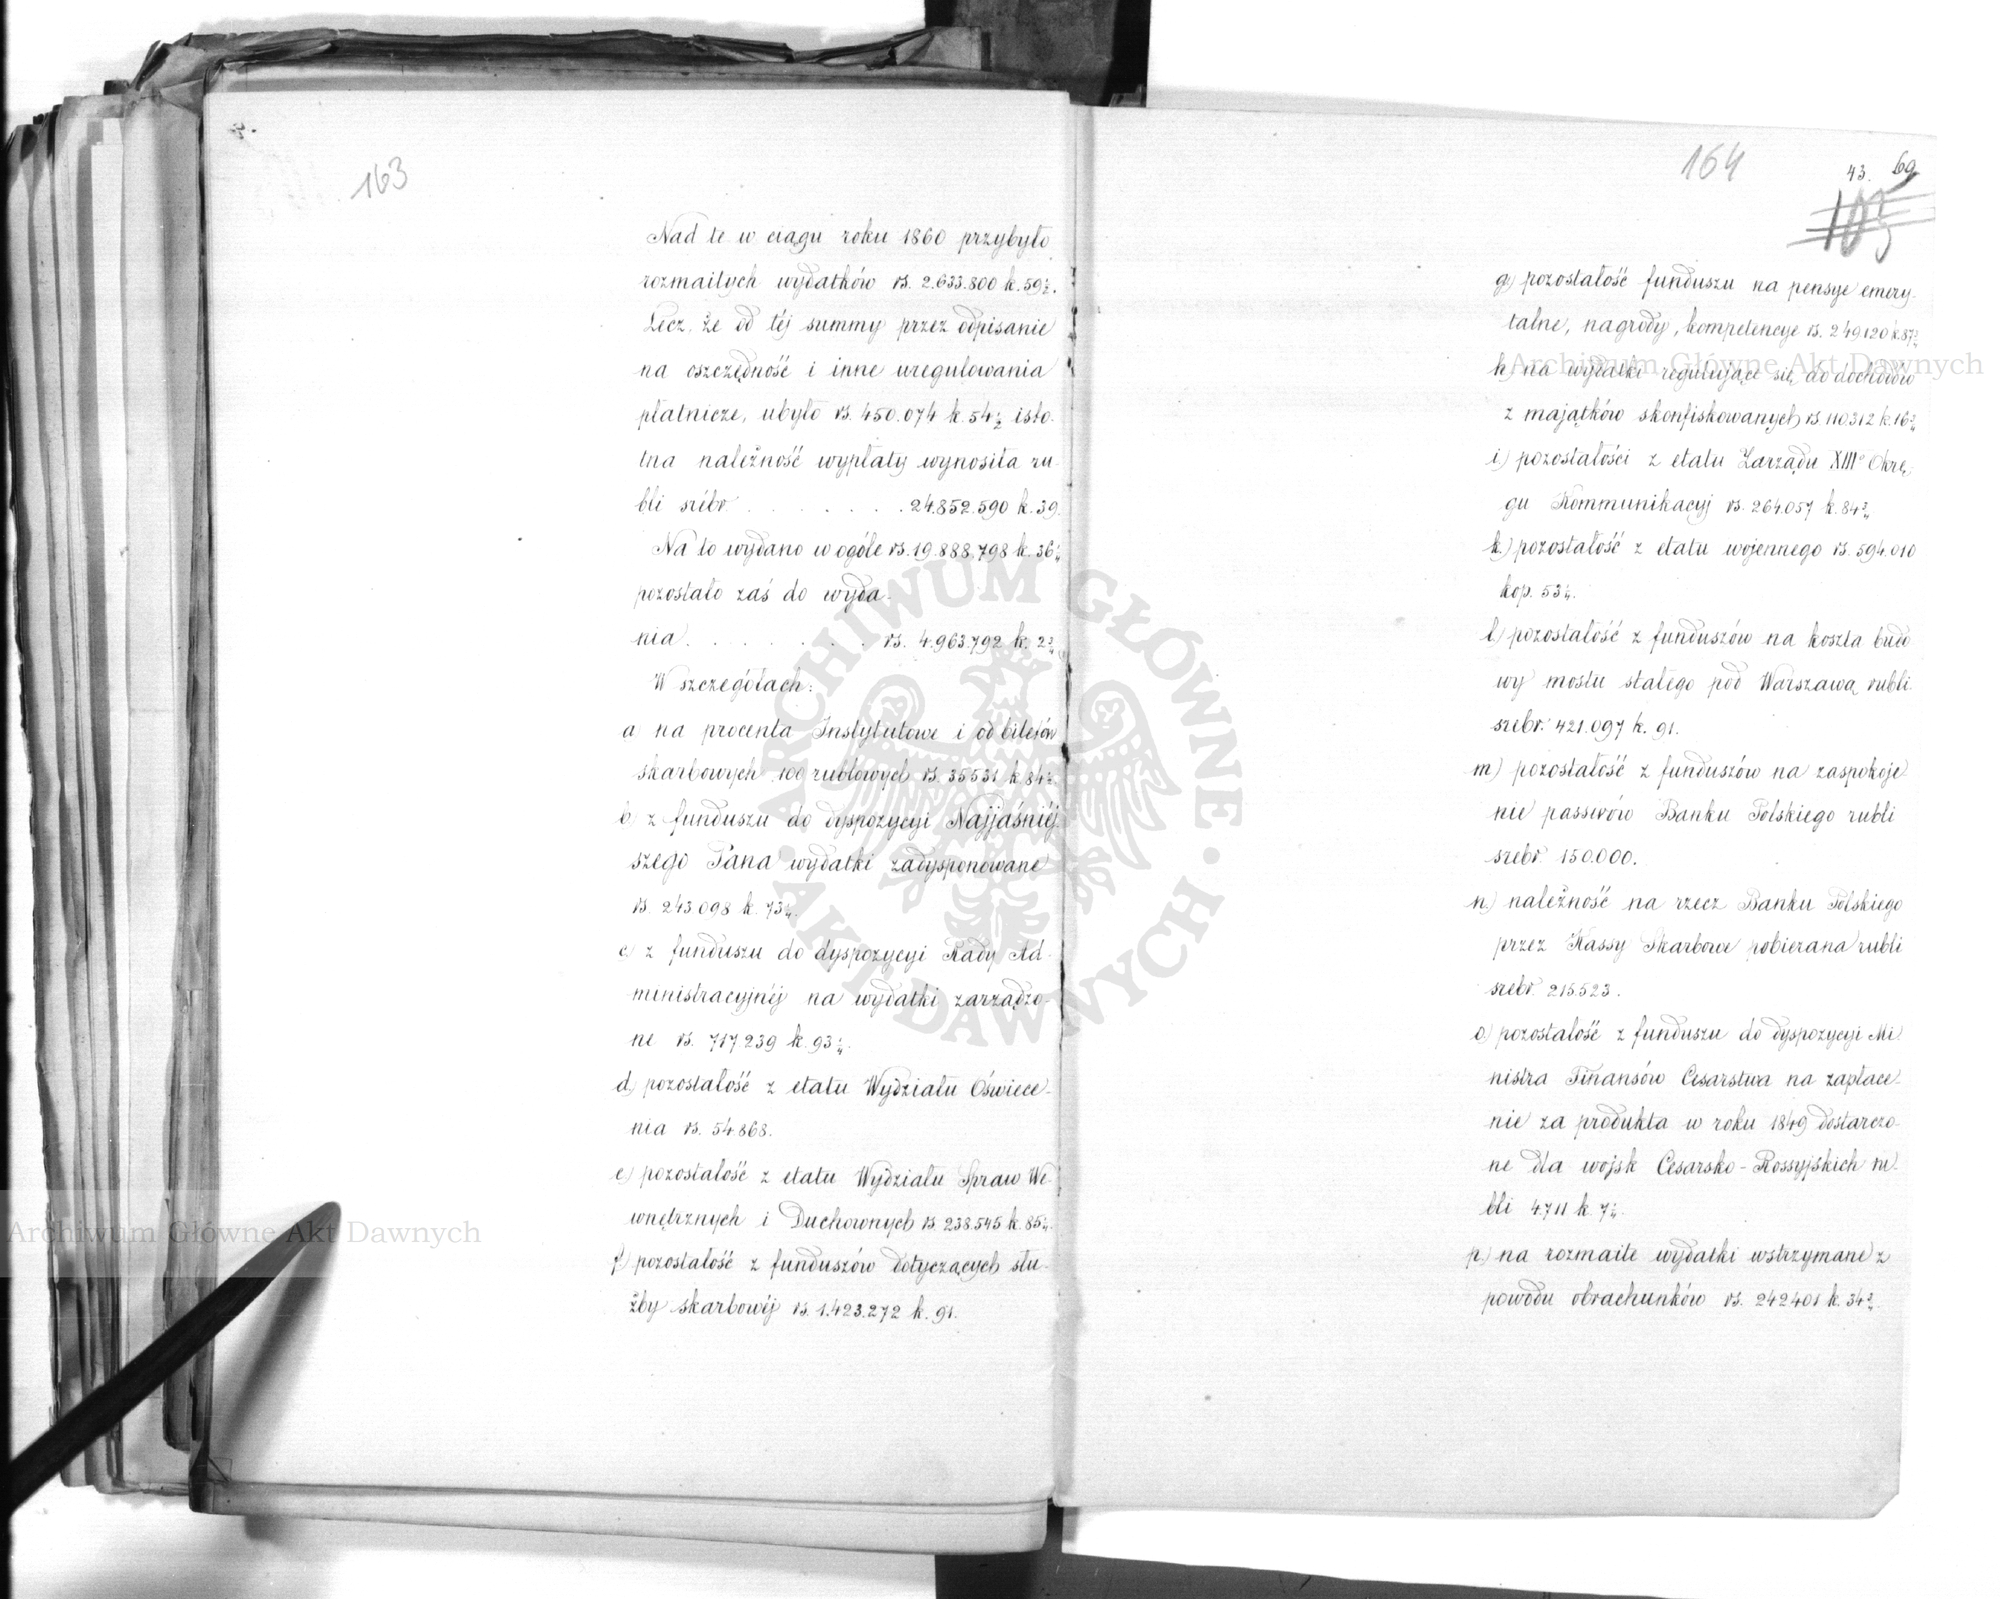 163
Nad te w ciągu roku 1860 przybyło
rozmaitych wydatków rs. 2.633.800 k. 59½.
Lecz, że od téj summy przez odpisanie
na oszczędność i inne uregulowania
płatnicze, ubyło rs. 450.074 k. 54½ isto-
tna należność wypłaty wynosiła ru-
bli srébr. . . . . . . . 24.852.590 k. 39.
Na to wydano w ogóle rs. 19.888.798 k. 36¼
pozostało zaś do wyda-
nia . . . . . . . rs. 4.963.792 k. 2¾
W szczegółach:
a) na procenta Instytutowe i od biletów
skarbowych 100 rublowych rs. 35531 k. 84½.
b) z funduszu do dyspozycyi Najjaśniéj-
szego Pana wydatki zadysponowane
rs. 243.098 k. 73¼.
c) z funduszu do dyspozycyi Rady Ad-
ministracyjnéj na wydatki zarządzo-
ne rs. 717.239 k. 93¼.
d) pozostałość z etatu Wydziału Oświece-
nia rs. 54.868.
e) pozostałość z etatu Wydziału Spraw We-
wnętrznych i Duchownych rs. 238.545 k. 85¼.
f) pozostałość z funduszów dotyczących słu-
żby skarbowéj rs. 1.423.272 k. 91.
164
43. 69
103
g) pozostałość funduszu na pensye emery-
talne, nagrody, kompetencye rs. 249120 k. 87¾
h) na wydatki regulujące się do dochodów
z majątków skonfiskowanych rs. 110.312 k. 16¾
i) pozostałości z etatu Zarządu XIIIº Okrę-
gu Kommunikacyj rs. 264.057 k. 84¾
k.) pozostałość z etatu wojennego rs. 594.010
kop. 53¼.
l) pozostałość z funduszów na koszta budo
wy mostu stałego pod Warszawą rubli
srebr. 421.097 k. 91.
m) pozostałość z funduszów na zaspokoje-
nie passivów Banku Polskiego rubli
srebr. 150.000.
n.) należność na rzecz Banku Polskiego
przez Kassy Skarbowe pobierana rubli
srebr. 215.523.
o) pozostałość z funduszu do dyspozycyi Mi-
nistra Finansów Cesarstwa na zapłace-
nie za produkta w roku 1849 dostarczo-
ne dla wojsk Cesarsko-Rossyjskich ru-
bli 4711 k. 7¼.
p) na rozmaite wydatki wstrzymane z
powodu obrachunków rs. 242401 k. 34¾.
Archiwum Główne Akt Dawnych
Archiwum Główne Akt Dawnych
ARCHIWUM GŁÓWNE · AKT DAWNYCH ·